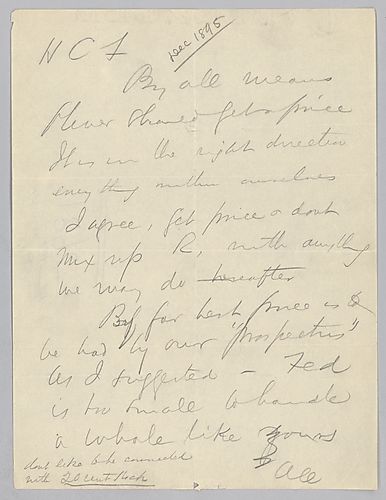 H C F
Dec 1895
By all means
Plener should get a price
It is in the right direction
everything within ourselves
I agree, get price & dont
mix up R, with anything
we may do hereafter
By far best price is to
be had by our "prospectus"
As I suggested - Fed
is too small to handle
a whole like yours
Ace
dont like to be connected
with